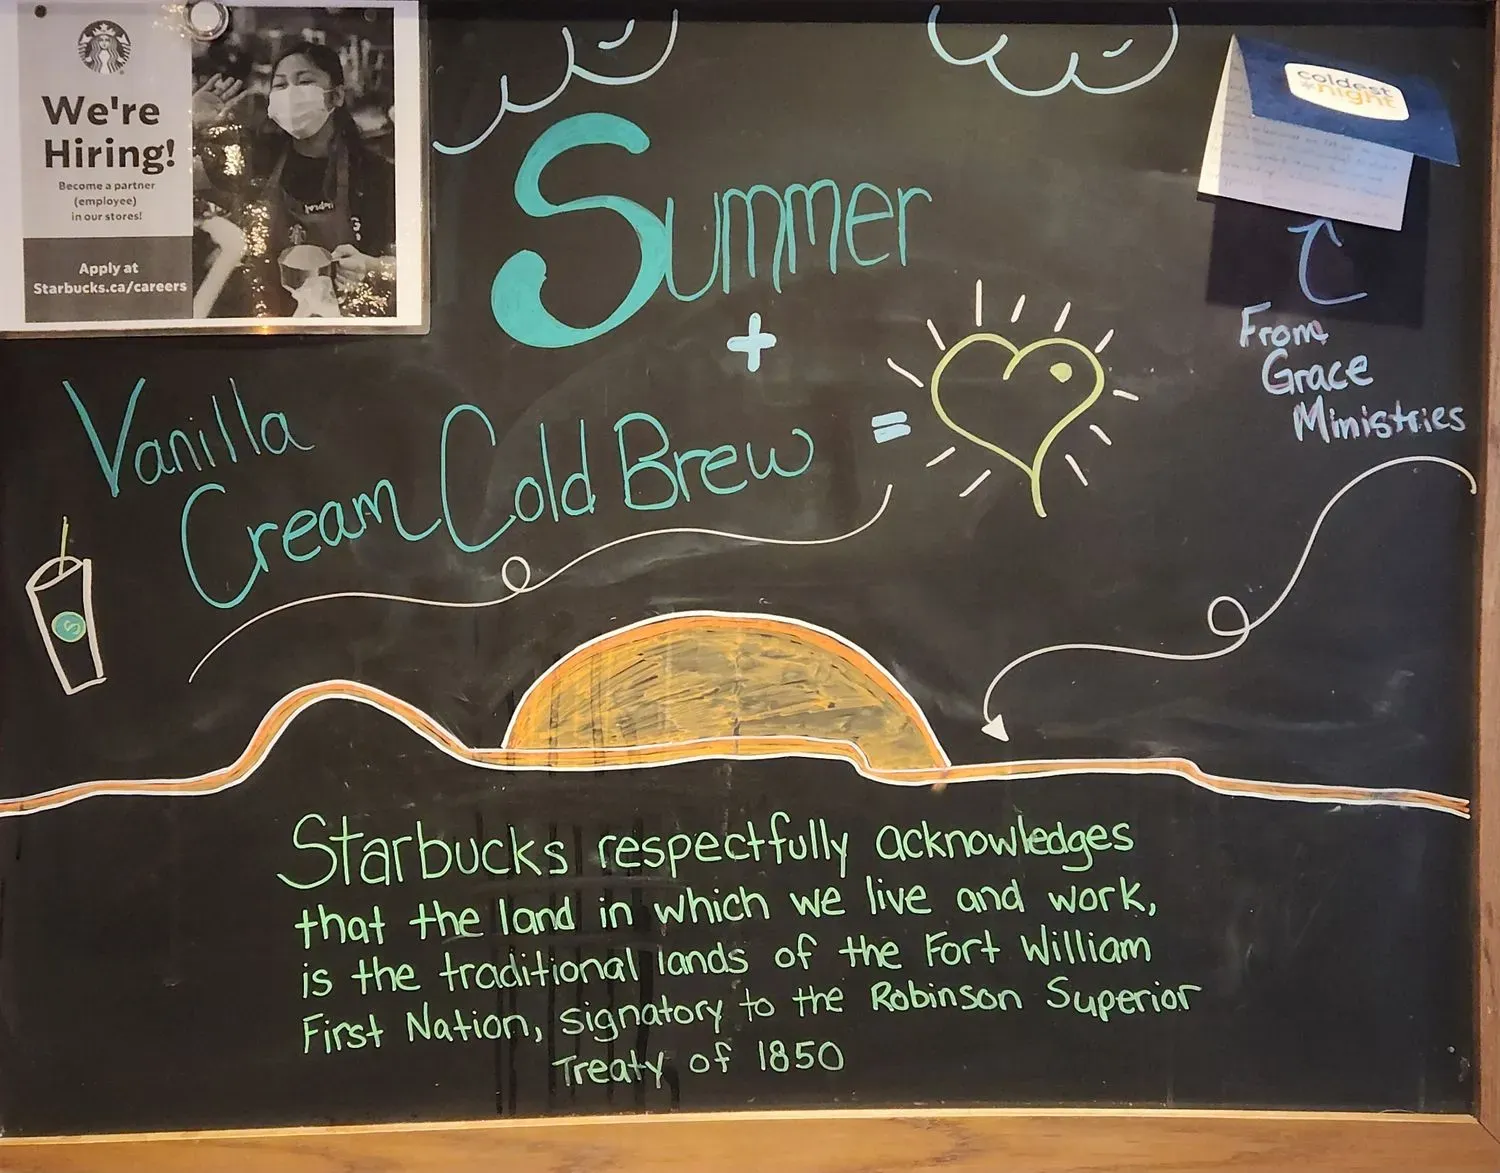 We're
Hiring!
Become a partner
(employee)
in our stores!
Apply at
Starbucks.ca/careers
Jordan
coldest
night
From
Grace
Ministries
Summer
+
Vanilla
Cream Cold Brew =
S
Starbucks respectfully acknowledges
that the land in which we live and work,
is the traditional lands of the Fort William
First Nation, signatory to the Robinson Superior
Treaty of 1850